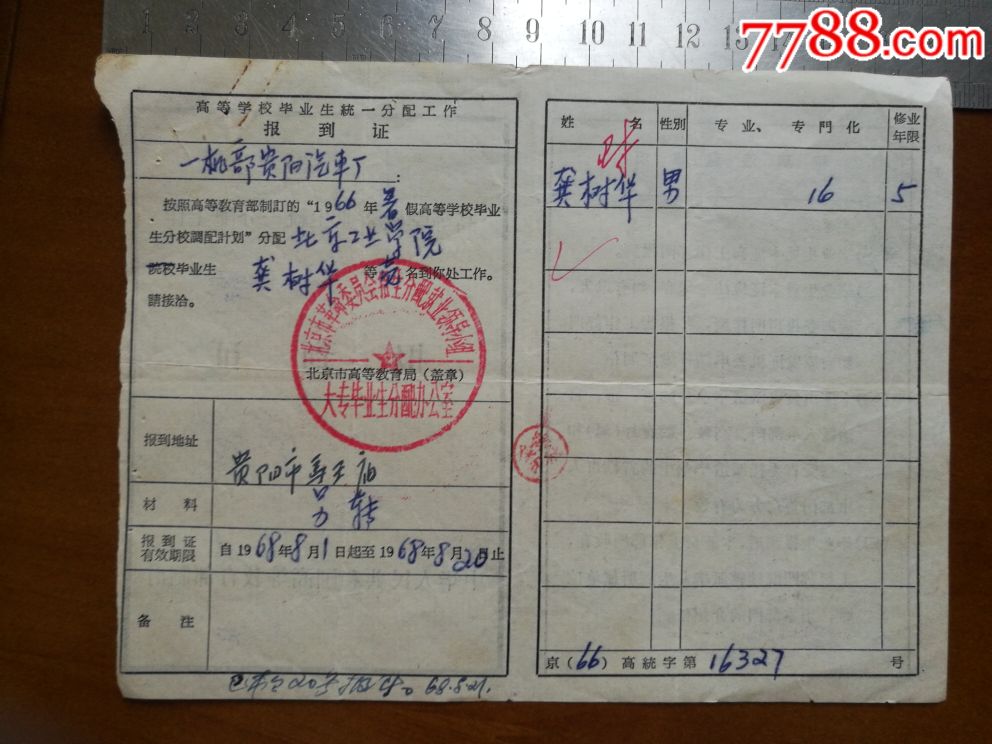 1 2 3 4 5 6 7 8 9 10 11 12 13
7788.com
高等学校毕业生統一分配工作
报到证
一机部贵阳汽車厂:
按照高等教育部制訂的“1966年暑假高等学校毕业
生分校調配計划”分配 北京工业学院
院校毕业生 龚树华 等 名到你处工作。
請接洽。
北京市革命委员会招生分配就业领导小组
北京市高等教育局(盖章)
大专毕业生分配办公室
报到地址
贵阳市
材料 另转
报到证
有效期限
自1968年8月1日起至1968年8月20日止
备注
68.8.21.
姓名 性別 专业、专門化 修业年限
龚树华 男 16 5
京(66)高統字第16327号